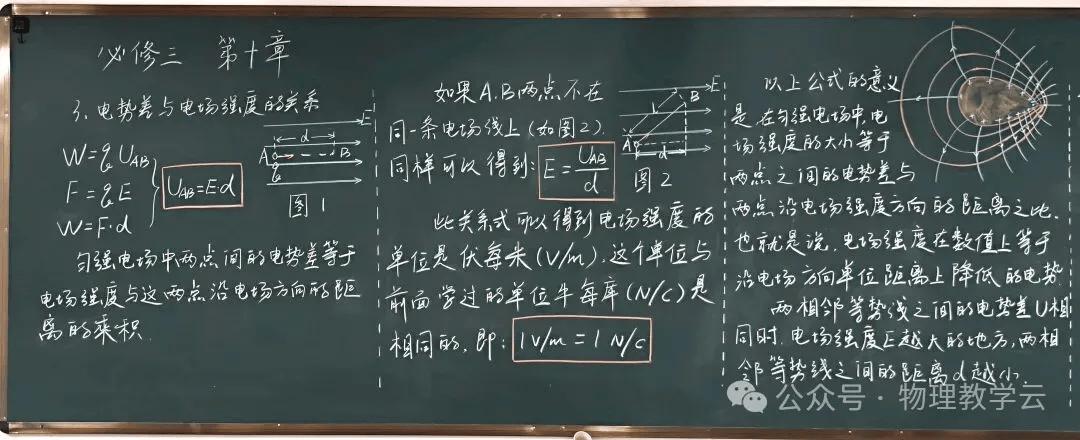 必修三 第十章
3、电势差与电场强度的关系
W=qU_AB
F=qE
W=F·d
U_AB=E·d
E
d
A
B
q
图1
匀强电场中两点间的电势差等于
电场强度与这两点沿电场方向的距
离的乘积.
如果A.B两点不在
同一条电场线上(如图2).
同样可以得到:E=U_AB/d
E
B
L
A
d
图2
此关系式可以得到电场强度的
单位是伏每米(V/m).这个单位与
前面学过的单位牛每库(N/C)是
相同的,即:1V/m=1N/C
以上公式的意义
是.在匀强电场中,电
场强度的大小等于
两点之间的电势差与
两点沿电场强度方向的距离之比.
也就是说,电场强度在数值上等于
沿电场方向单位距离上降低的电势.
两相邻等势线之间的电势差U相
同时.电场强度E越大的地方,两相
邻等势线之间的距离d越小.
公众号·物理教学云